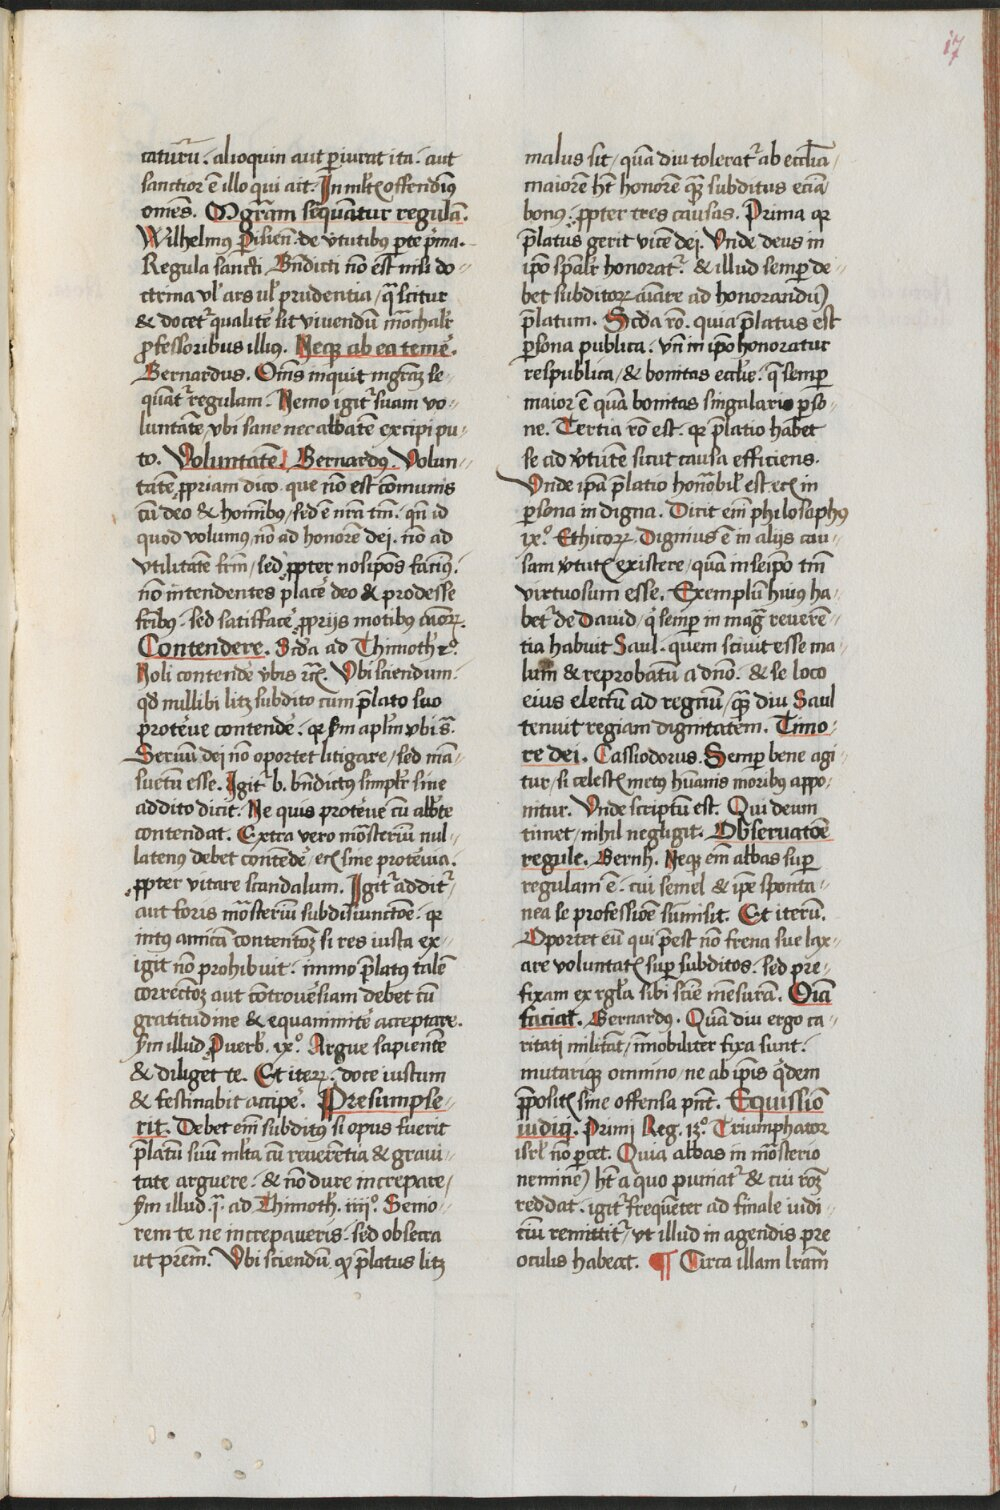 17
caturū. alioquin aut p̄iurat ita. aut
sanctior ē illo qui ait. In mlt̄ offendimꝰ
omēs. Mgr̄am sequātur regulā.
Wilhelmꝰ Pisien̄. de v̓tutibus ꝑte p̓ma.
Regula sancti Bn̄dicti nō est nisi do-
ctrina vl̓ ars ul̓ prudentia / q̄ scitur
& docet᷑ qualit̓ sit vivendū mōchalit̓
ꝓfessoribus illiꝰ. Neqꝫ ab ea teme᷑.
Bernardus. Om̄s inquit mgr̄aꝫ se-
quāt᷑ regulam. Nemo igit᷑ suam vo-
luntatē / vbi sane nec abbatē excipi pu-
to. Voluntatē Bernardꝰ. Volun-
tatē ꝓpriam dico que nō est cōmunis
cū deo & homībꝰ / sed ē nr̄a tm̄. qn̄ id
quod volumꝰ / nō ad honorē dei. nō ad
vtilitatē frm̄ / sed ꝓpter nosip̄os facimꝰ.
nō intendentes placē deo & prodesse
fribꝰ. sed satisfacē ꝓprijs motibus aīoꝝ.
Contendere. Scd̄a ad Thimoth̓ 2º.
Noli contendē v̓bis rc̄. Vbi sciendum.
qd̓ nullibi litꝫ subdito cum p̄lato suo
proteve contendē. qꝛ s̄m apl̄m vbi s̄.
Servū dei nō oportet litigare / sed mā-
suetū esse. Igit᷑ b. bn̄dictꝰ simplr̓ sine
addito dicit. Ne quis proteve cū abbt̄e
contendat. Extra vero mōsteriū nul-
latenꝰ debet contendē / ec̄ sine protevia.
ꝓpter vitare scandalum. Igit᷑ addit᷑ /
aut foris mōsteriū subdisiunctōe. qꝛ
intꝰ amicā contentōꝫ si res iusta ex-
igit nō prohibuit. immo p̄latꝰ talē
correctōꝫ aut cōtrove᷑siam debet cū
gratitudine & equanimit̓ acceptare.
s̄m illud Prouerb̓. ix.º Argue sapientē
& diliget te. Et iteꝝ. doce iustum
& festinabit accipe᷑. Presumpse-
rit. Debet em̄ subditꝰ si opus fuerit
p̄latū suū ml̓ta cū reverētia & gravi-
tate arguere. & nō dure increpare /
s̄m illud. p̄. ad Thimoth̓. iiii.º Senio-
rem te ne increpaveris. sed obsecra
ut pr̄em. Vbi sciendū qd̓ p̄latus litꝫ
malus sit / quā diu tolerat᷑ ab ecclia /
maiorē hꝫt honorē qꝫ subditus eciā
bonꝰ. ꝓpter tres causas. Prima qꝛ
p̄latus gerit vicē dei. Vnde deus in
ip̄o sp̄alr̓ honorat᷑. & illud semꝑ de-
bet subditoꝝ aīare ad honorandū
p̄latum. Scd̄a rō. quia p̄latus est
ꝑsona publica. vn̄ in ip̄o honoratur
respublica / & bonitas ecclie. q̄ semꝑ
maior ē quā bonitas singularis ꝑso-
ne. Tertia rō est. qꝛ p̄latio habet
se ad v̓tutē sicut causa efficiens.
Vnde ip̄a p̄latio honōbil̓ est ec̄ in
ꝑsona indigna. Dicit em̄ philosophꝰ
ix.º Ethicoꝝ. Digniꝰ ē in alijs cau-
sam v̓tut̄ existere / quā in seip̄o tm̄
virtuosum esse. Exemplū huiꝰ ha-
bet᷑ de David / q̓ semꝑ in mag᷑ reverē-
tia habuit Saul. quem scivit esse ma-
lum & reprobatū a dn̄o. & se loco
eius electū ad regnū / qꝫ diu Saul
tenuit regiam dignitatem. Timo-
re dei. Cassiodorus. Semꝑ bene agi-
tur / si celest̄ metꝰ hūanis moribus appo-
nitur. Vnde scriptū est. Qui deum
timet / nihil negligit. Observatōe
regule. Bernh̓. Neqꝫ em̄ abbas suꝑ
regulam ē. cui semel & ip̄e spontā-
nea se professiōe sūmisit. Et iterū.
Oportet eū qui p̄est nō frena sue lax-
are voluntat̄ suꝑ subditos. sed pre-
fixam ex regl̓a sibi scire mēsurā. Oīa
faciat. Bernardꝰ. Quā diu ergo ca-
ritati militāt / īmobiliter fixa sunt.
mutariqꝫ omnino / ne ab ip̄is q̓dem
p̄posit̄ sine offensa pn̄t. Equissīo
iudici. Primi Reg. 15.º Triumphator
isrl̓ nō ꝑcet. Quia abbas in mōsterio
neminē hꝫt a quo puniat᷑ & cui rōꝫ
reddat. igit᷑ frequēter ad finale iudi-
ciū remittit᷑ / vt illud in agendis pre
oculis habeat. ¶ Circa illam lr̄am